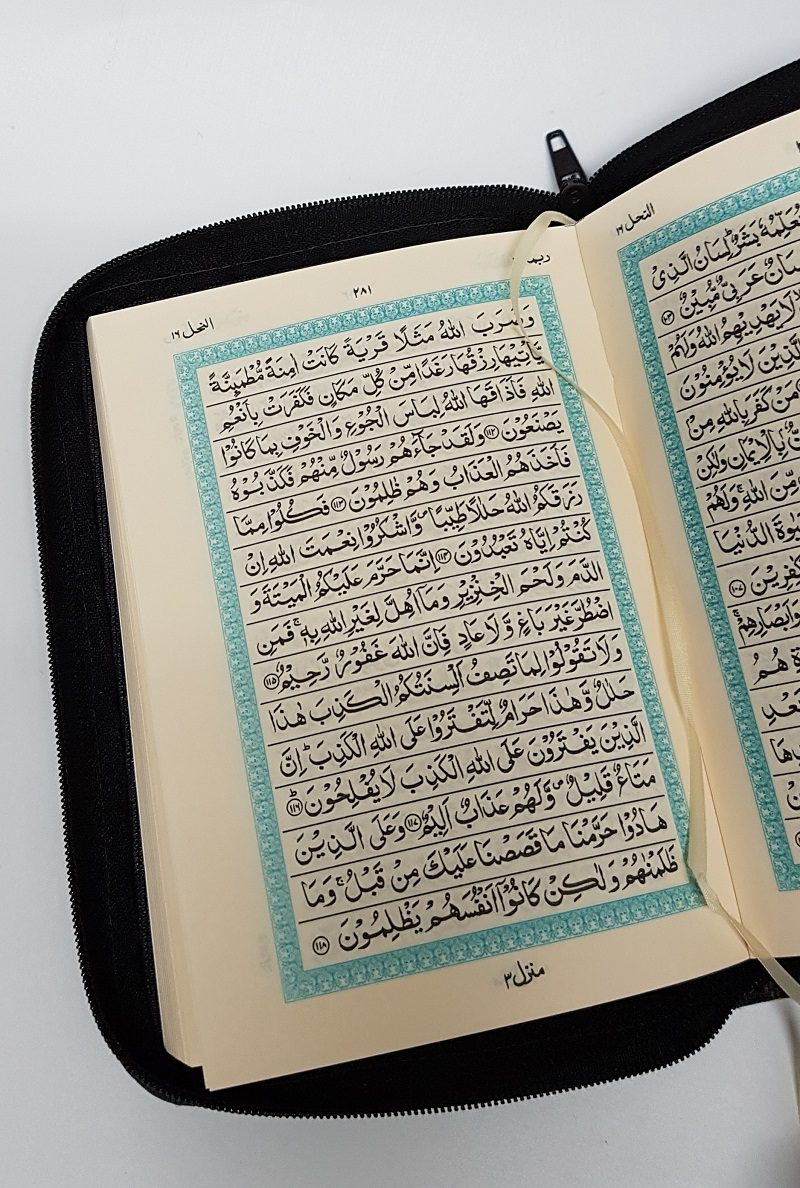 النحل ١٦
بَشَرٌ ؕ لِسَانُ الَّذِیْ
عَرَبِیٌّ مُّبِیْنٌ ۝١٠٣
لَا یَهْدِیْهِمُ اللّٰهُ وَلَهُمْ
الَّذِیْنَ لَا یُؤْمِنُوْنَ
مَنْ كَفَرَ بِاللّٰهِ مِنْ
بِالْاِیْمَانِ وَلٰكِنْ
مِّنَ اللّٰهِ ۚ وَلَهُمْ
الدُّنْیَا
۝١٠٧
وَاَبْصَارِهِمْ ۚ
هُمُ
بَعْدِ
ربما
٢٨١
النحل ١٦
وَضَرَبَ اللّٰهُ مَثَلًا قَرْیَةً كَانَتْ اٰمِنَةً مُّطْمَىِٕنَّةً
یَّاْتِیْهَا رِزْقُهَا رَغَدًا مِّنْ كُلِّ مَكَانٍ فَكَفَرَتْ بِاَنْعُمِ
اللّٰهِ فَاَذَاقَهَا اللّٰهُ لِبَاسَ الْجُوْعِ وَالْخَوْفِ بِمَا كَانُوْا
یَصْنَعُوْنَ ۝١١٢ وَلَقَدْ جَآءَهُمْ رَسُوْلٌ مِّنْهُمْ فَكَذَّبُوْهُ
فَاَخَذَهُمُ الْعَذَابُ وَهُمْ ظٰلِمُوْنَ ۝١١٣ فَكُلُوْا مِمَّا
رَزَقَكُمُ اللّٰهُ حَلٰلًا طَیِّبًا ۪ وَّاشْكُرُوْا نِعْمَتَ اللّٰهِ اِنْ
كُنْتُمْ اِیَّاهُ تَعْبُدُوْنَ ۝١١٤ اِنَّمَا حَرَّمَ عَلَیْكُمُ الْمَیْتَةَ وَ
الدَّمَ وَلَحْمَ الْخِنْزِیْرِ وَمَاۤ اُهِلَّ لِغَیْرِ اللّٰهِ بِهٖ ۚ فَمَنِ
اضْطُرَّ غَیْرَ بَاغٍ وَّلَا عَادٍ فَاِنَّ اللّٰهَ غَفُوْرٌ رَّحِیْمٌ ۝١١٥
وَلَا تَقُوْلُوْا لِمَا تَصِفُ اَلْسِنَتُكُمُ الْكَذِبَ هٰذَا
حَلٰلٌ وَّهٰذَا حَرَامٌ لِّتَفْتَرُوْا عَلَی اللّٰهِ الْكَذِبَ ؕ اِنَّ
الَّذِیْنَ یَفْتَرُوْنَ عَلَی اللّٰهِ الْكَذِبَ لَا یُفْلِحُوْنَ ۝١١٦
مَتَاعٌ قَلِیْلٌ ۪ وَّلَهُمْ عَذَابٌ اَلِیْمٌ ۝١١٧ وَعَلَی الَّذِیْنَ
هَادُوْا حَرَّمْنَا مَا قَصَصْنَا عَلَیْكَ مِنْ قَبْلُ ۚ وَمَا
ظَلَمْنٰهُمْ وَلٰكِنْ كَانُوْۤا اَنْفُسَهُمْ یَظْلِمُوْنَ ۝١١٨
منزل ٣